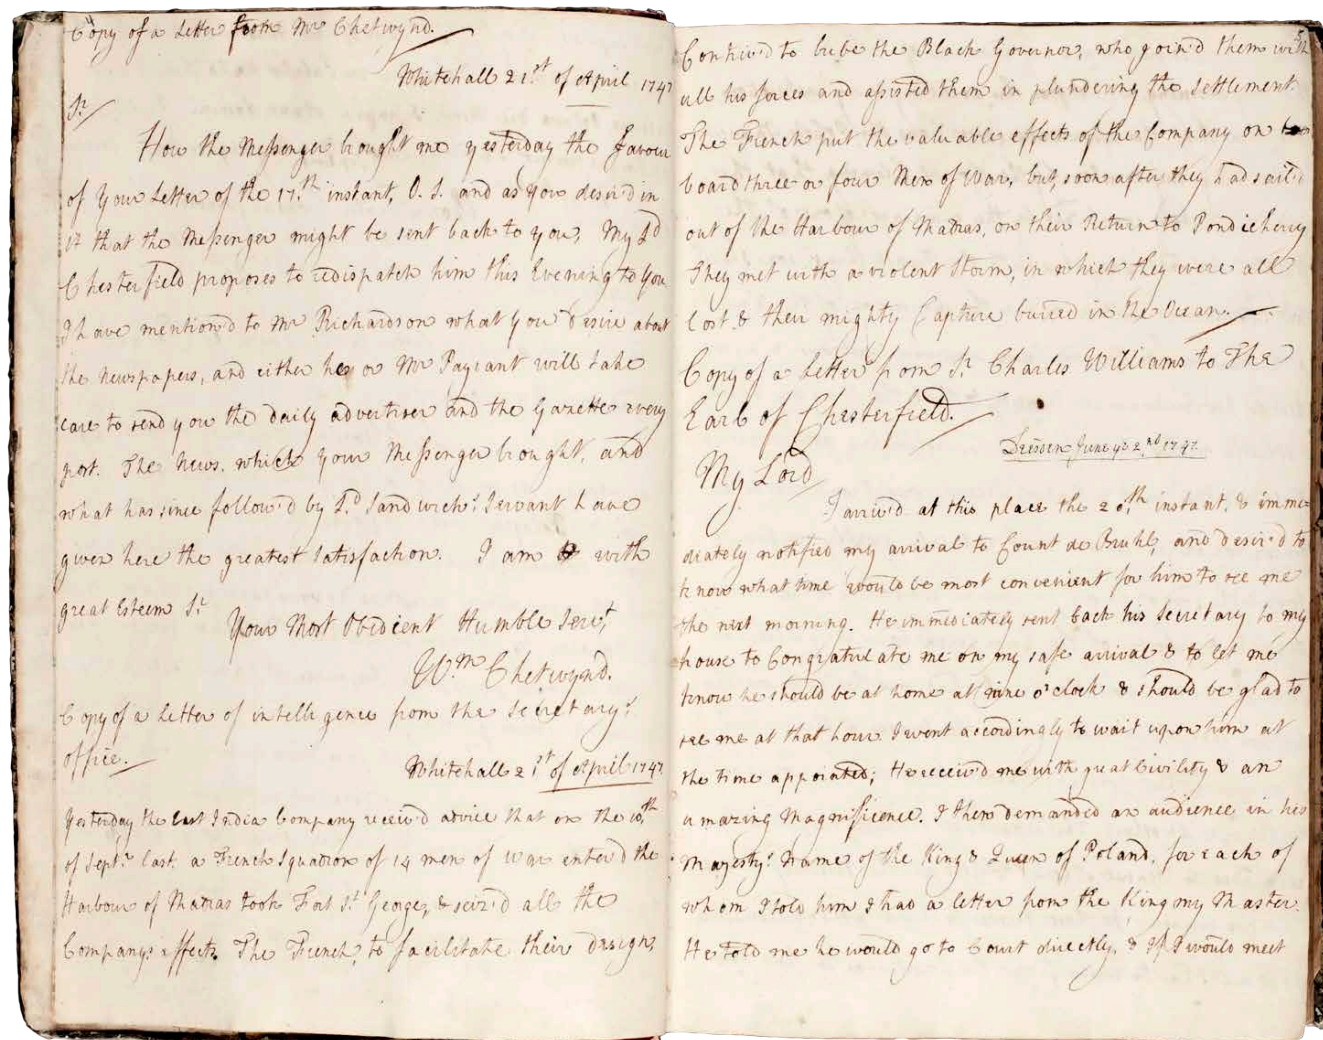 Copy of a Letter from Mr Chetwynd.
Whitehall 21st of April 1747
Sr/
How the Messenger brought me yesterday the Favour
of Your Letter of the 17th instant, O. S. and as you desir'd in
it that the Messenger might be sent back to you, My Ld
Chesterfield proposes to redispatch him this Evening to You
I have mention'd to Mr Richardson what You desire about
the Newspapers, and either he or Mr Payzant will take
care to send you the daily advertiser and the Gazette every
post. The News, which your Messenger brought, and
what has since follow'd by Ld Sandwich's Servant have
given here the greatest Satisfaction. I am with
great Esteem Sr
Your Most Obedient Humble Servt
Wm Chetwynd.
Copy of a Letter of intelligence from the Secretary's
office.
Whitehall 21st of April 1747.
Yesterday the East India Company receiv'd advice that on the 10th
of Septr last a French Squadron of 14 men of War enter'd the
Harbour of Madras took Fort St George, & seiz'd all the
Company's effects. The French, to facilitate their designs,
5
Contriv'd to bribe the Black Governor, who join'd them with
all his forces and assisted them in plundering the Settlement.
The French put the valuable effects of the Company on
board three or four Men of War, but, soon after they had sail'd
out of the Harbour of Madras, on their Return to Pondicherry
They met with a violent Storm, in which they were all
lost & their mighty Capture buried in the Ocean.
Copy of a Letter from Sr Charles Williams to The
Earl of Chesterfield.
Dresden June ye 2nd 1747.
My Lord
I arriv'd at this place the 20th instant, & imme-
diately notified my arrival to Count de Bruhl, and desir'd to
know what time would be most convenient for him to see me
the next morning. He immediately sent back his Secretary to my
house to Congratulate me on my safe arrival & to let me
know he should be at home at nine o'clock & should be glad to
see me at that hour I went accordingly to wait upon him at
the time appointed; He receiv'd me with great Civility & an
amazing Magnificence. I then demanded an audience in his
Majesty's Name of the King & Queen of Poland, for each of
whom I told him I had a letter from the King my Master.
He told me he would go to Court directly, & If I would meet